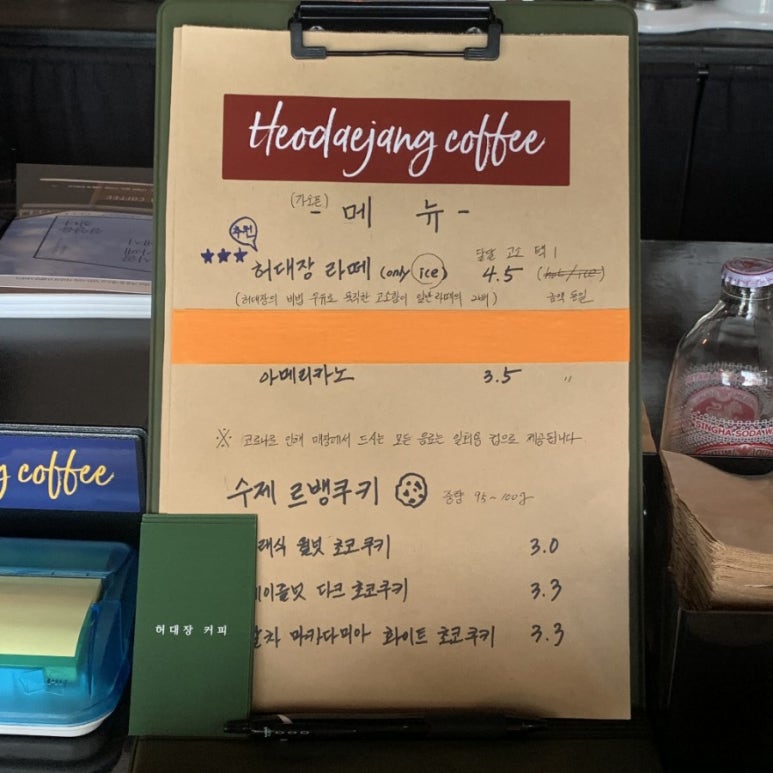 Heodaejang coffee
(가오픈)
- 메 뉴 -
추천
허대장 라떼 (only ice) 달달 고소 택 1 4.5 (hot/ice)
(허대장의 비법 우유로 묵직한 고소함이 일반라떼의 2배) 금액 동일
아메리카노 3.5 〃
※ 코로나로 인해 매장에서 드시는 모든 음료는 일회용 컵으로 제공됩니다.
수제 르뱅쿠키 중량 95~100g
래식 월넛 초코쿠키 3.0
이플넛 다크 초코쿠키 3.3
말차 마카다미아 화이트 초코쿠키 3.3
허대장 커피
g coffee
SINGHA-SODAWA